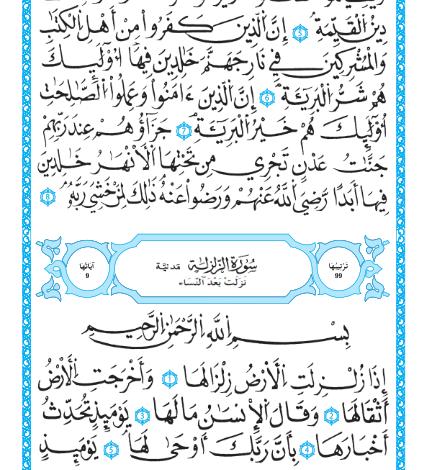 دِينُ الْقَيِّمَةِ ٥ إِنَّ الَّذِينَ كَفَرُوا مِنْ أَهْلِ الْكِتَابِ
وَالْمُشْرِكِينَ فِي نَارِ جَهَنَّمَ خَالِدِينَ فِيهَا أُوْلَٰئِكَ
هُمْ شَرُّ الْبَرِيَّةِ ٦ إِنَّ الَّذِينَ ءَامَنُوا وَعَمِلُوا الصَّالِحَاتِ
أُوْلَٰئِكَ هُمْ خَيْرُ الْبَرِيَّةِ ٧ جَزَاؤُهُمْ عِندَ رَبِّهِمْ
جَنَّٰتُ عَدْنٍ تَجْرِي مِن تَحْتِهَا الْأَنْهَٰرُ خَالِدِينَ
فِيهَا أَبَدًا رَّضِيَ اللَّهُ عَنْهُمْ وَرَضُوا عَنْهُ ذَٰلِكَ لِمَنْ خَشِيَ رَبَّهُ ٨
تَرْتِيبُهَا 99 سُورَةُ الزَّلْزَلَةِ مَدَنِيَّة آيَاتُهَا 9
نَزَلَتْ بَعْدَ النِّسَاءِ
بِسْمِ اللَّهِ الرَّحْمَٰنِ الرَّحِيمِ
إِذَا زُلْزِلَتِ الْأَرْضُ زِلْزَالَهَا ١ وَأَخْرَجَتِ الْأَرْضُ
أَثْقَالَهَا ٢ وَقَالَ الْإِنسَٰنُ مَا لَهَا ٣ يَوْمَئِذٍ تُحَدِّثُ
أَخْبَارَهَا ٤ بِأَنَّ رَبَّكَ أَوْحَىٰ لَهَا ٥ يَوْمَئِذٍ